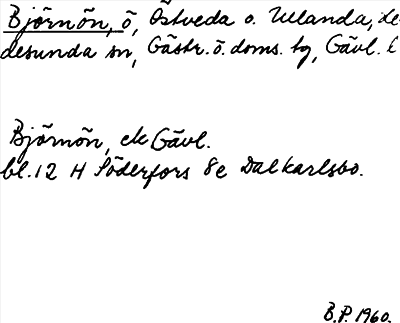 Björnön, ö, Östveda o. Ulanda, de
desunda sn, Gästr. ö. doms. tg, Gävl. l
Björnön, ek Gävl.
bl. 12 H Söderfors 8e Dalkarlsbo.
B.P. 1960.